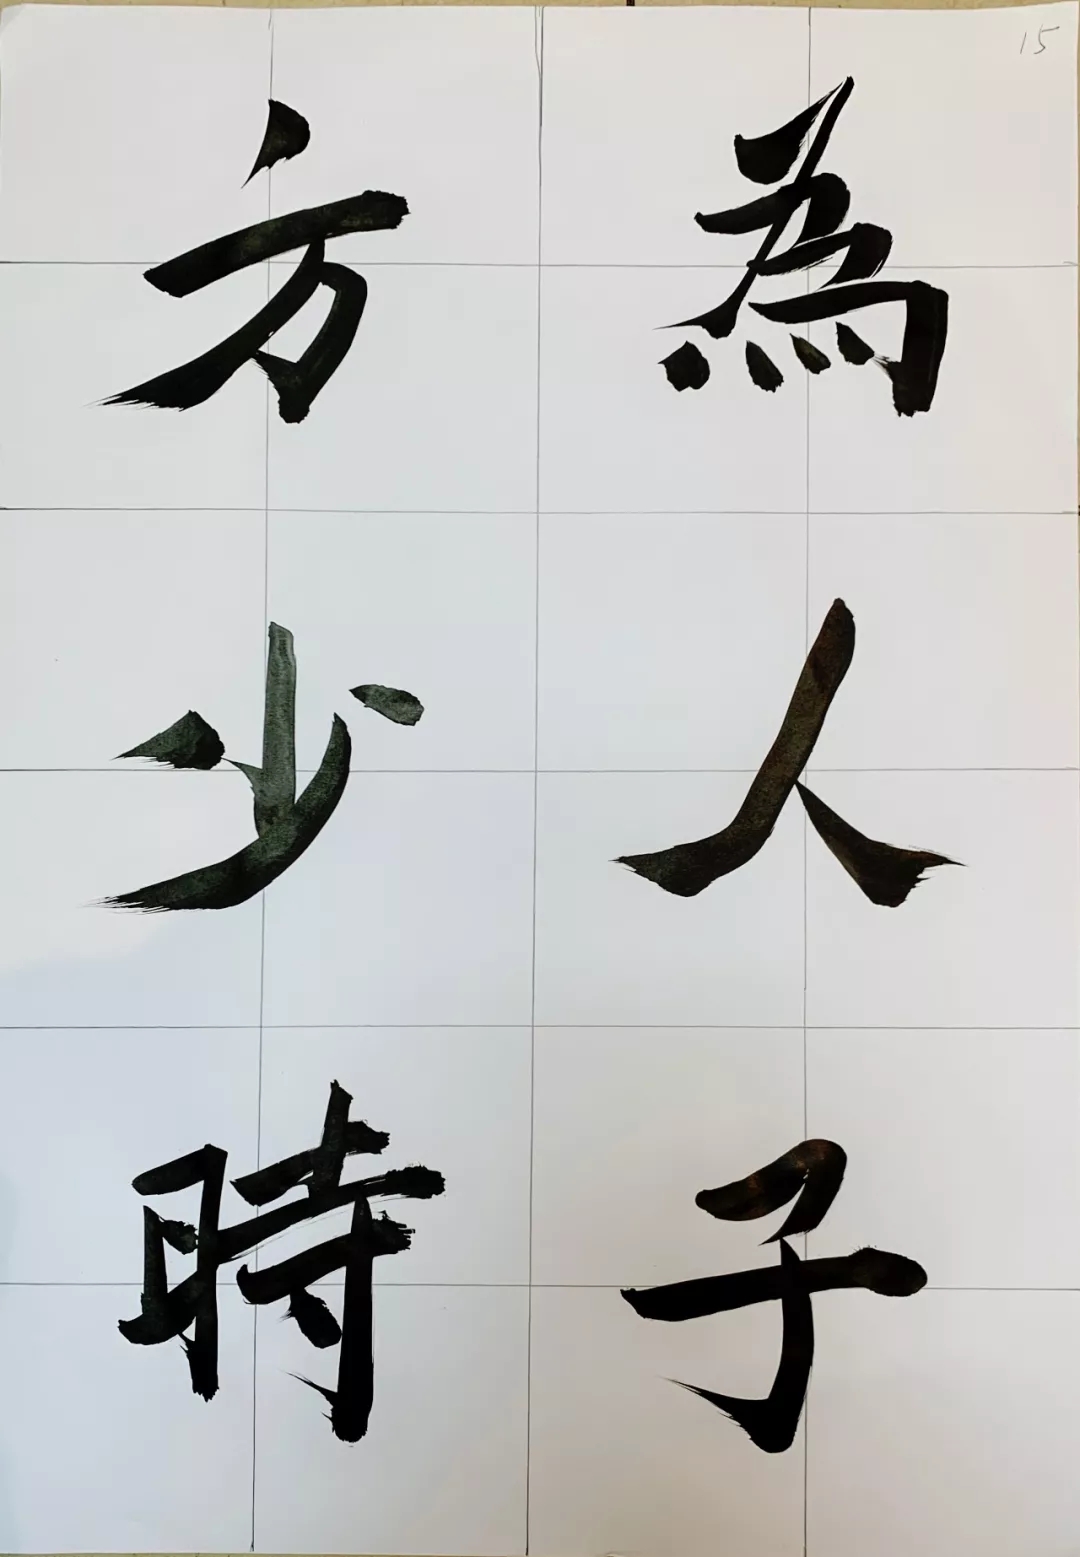 15
為人子
方少時